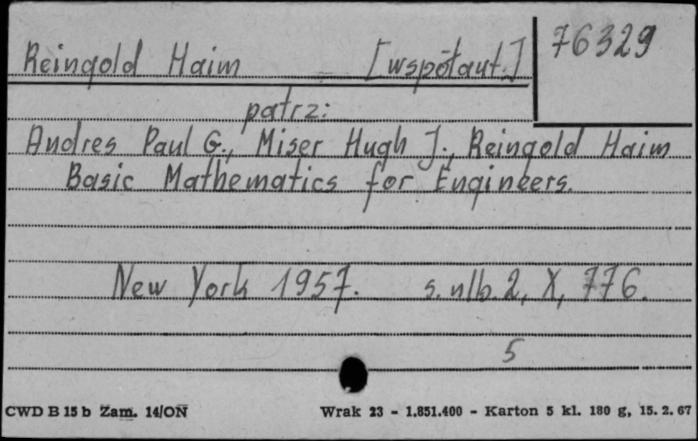 76329
Reingold Haim [współaut.]
patrz:
Andres Paul G., Miser Hugh J., Reingold Haim
Basic Mathematics for Engineers.
New York 1957. s. nlb. 2, X, 776.
5
CWD B 15 b Zam. 14/ON Wrak 23 - 1.851.400 - Karton 5 kl. 180 g, 15. 2. 67